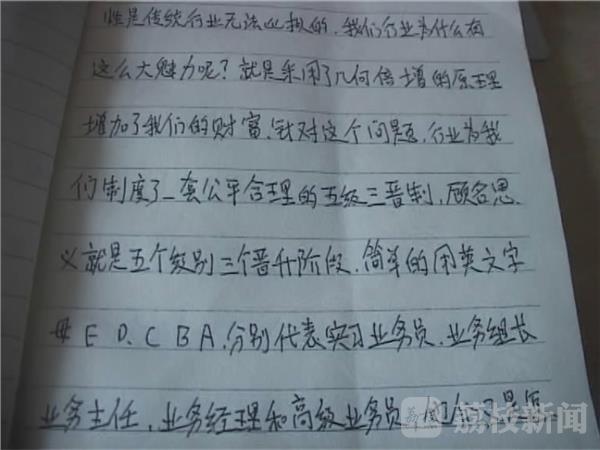 性是传统行业无法比拟的.我们行业为什么有
这么大魅力呢?就是采用了几何倍增的原理
增加了我们的财富.针对这个问题,行业为我
们制度了一套公平合理的五级三晋制,顾名思
义就是五个级别三个晋升阶段.简单的用英文字
母 E D.C B A.分别代表实习业务员.业务组长
业务主任,业务经理和高级业务员
荔枝新闻